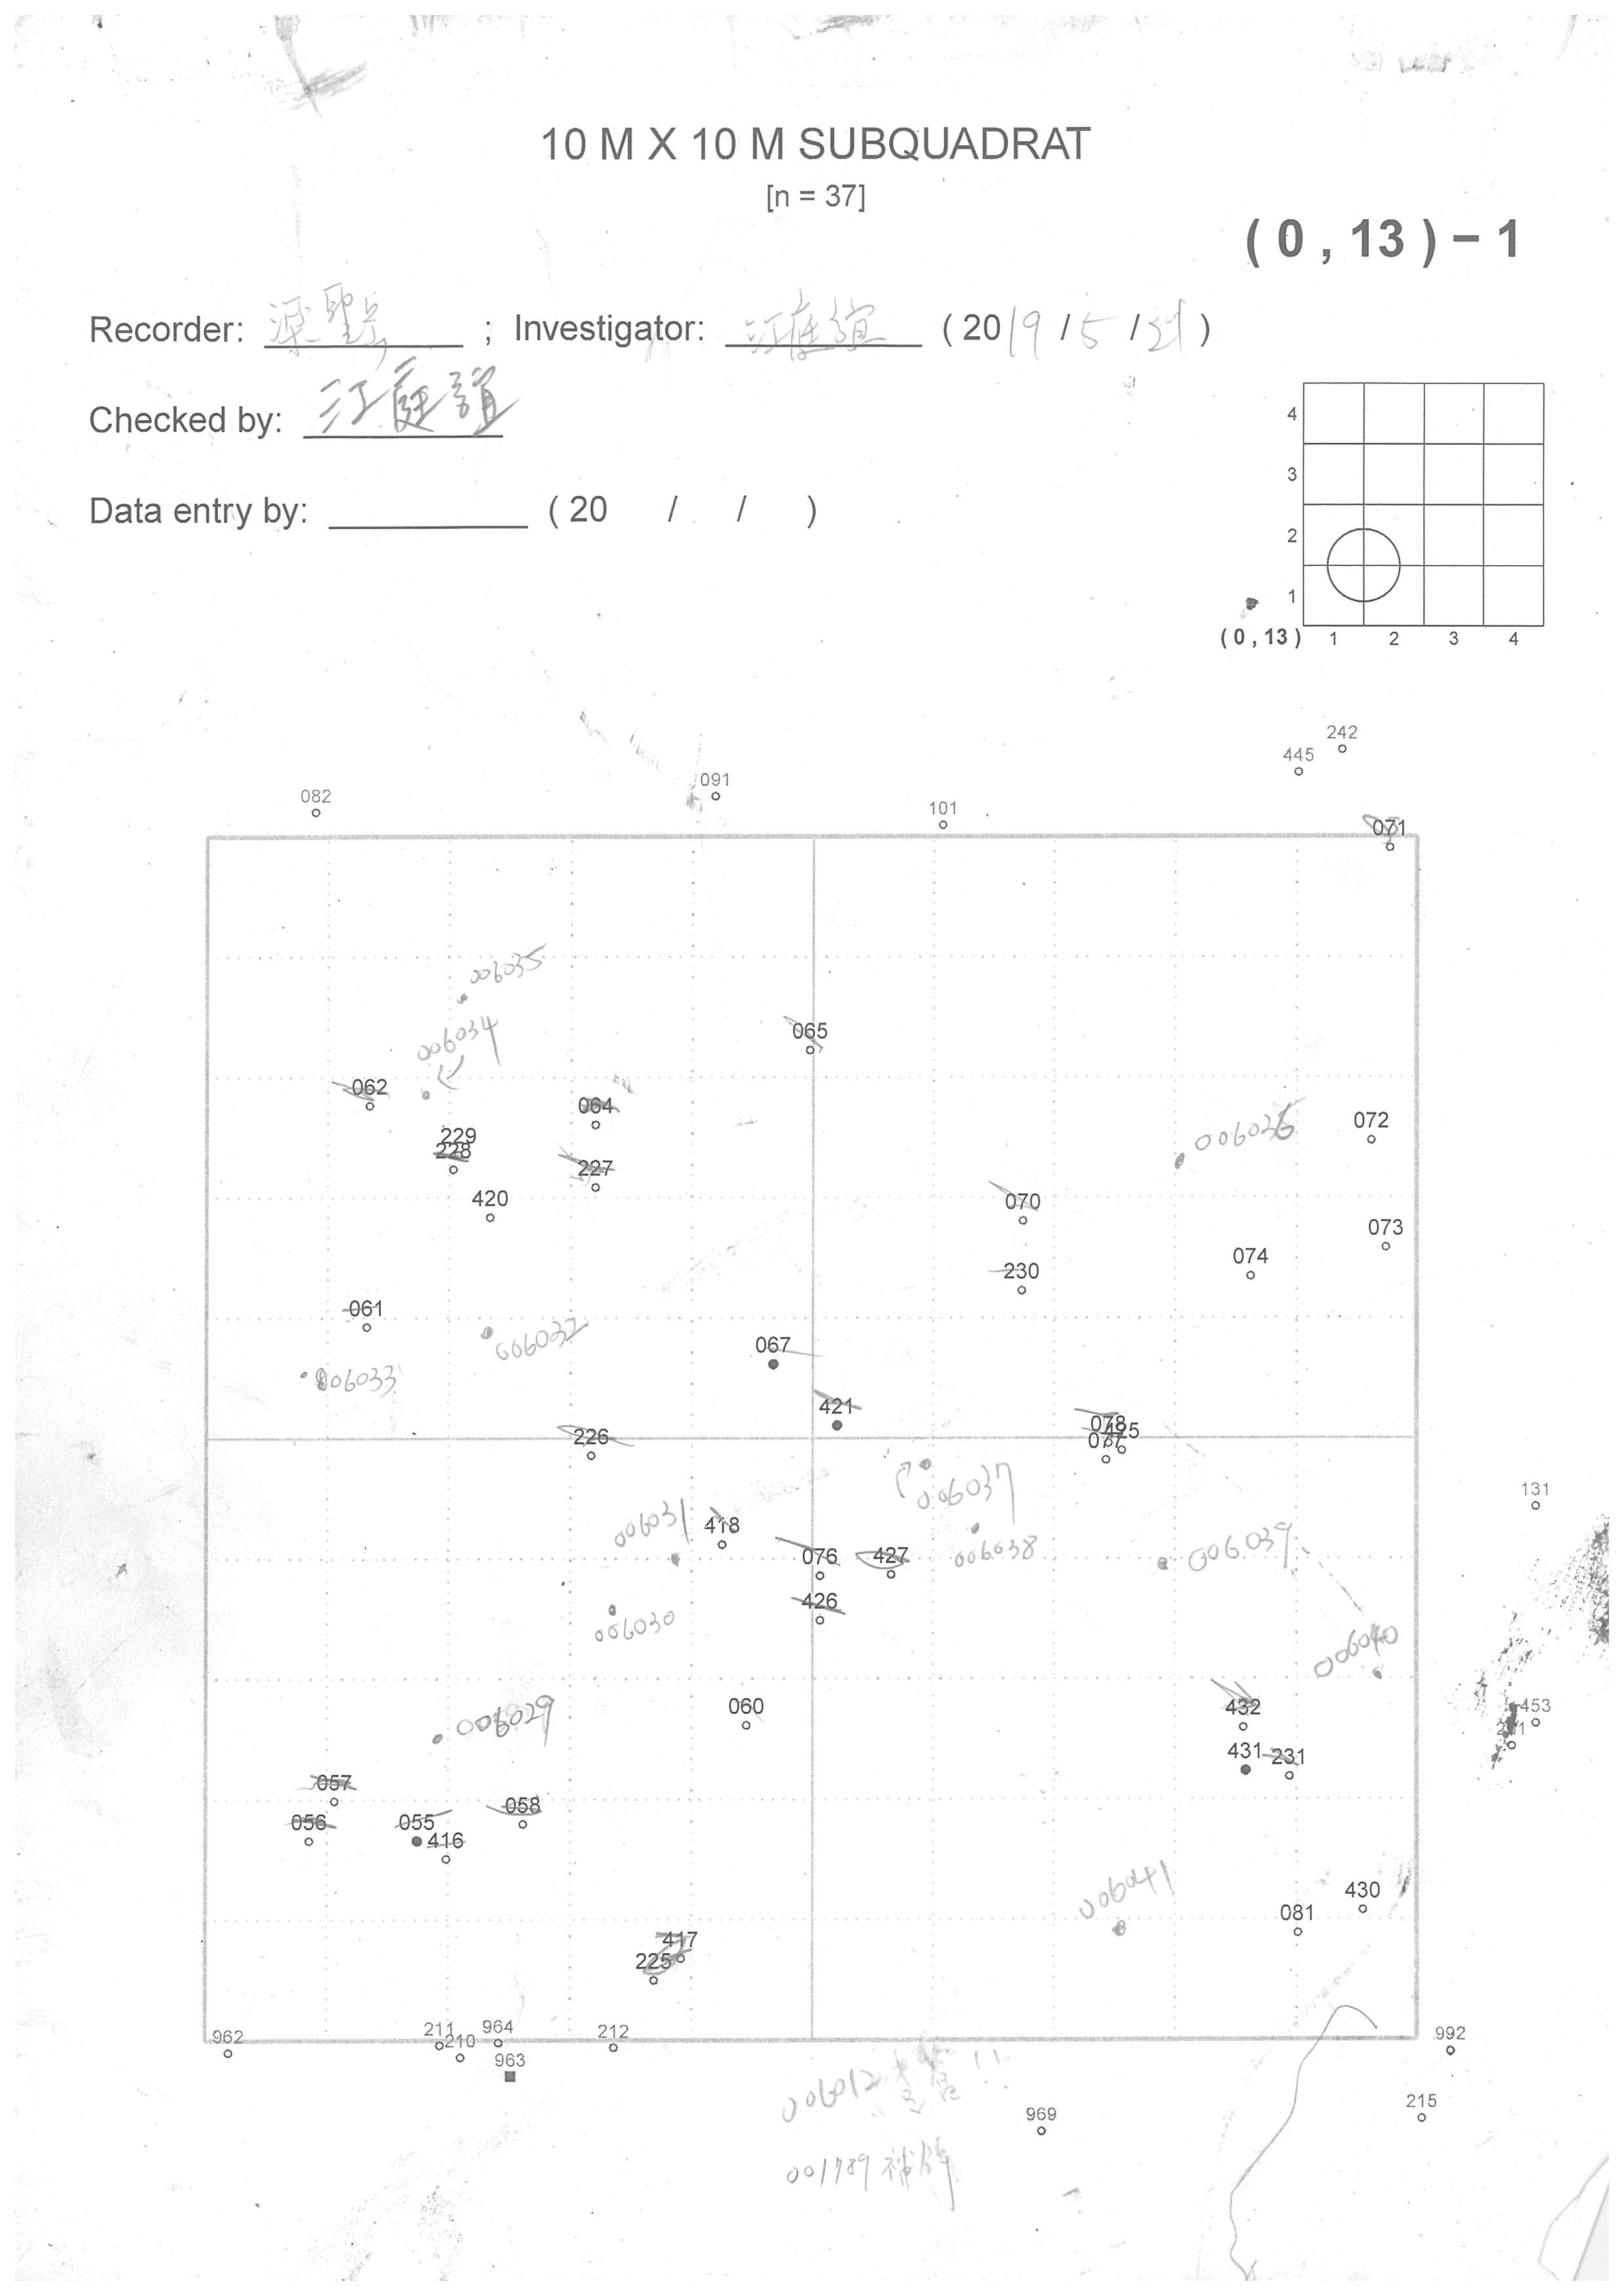 10 M X 10 M SUBQUADRAT
[n = 37]
( 0 , 13 ) − 1
Recorder: ; Investigator: 江庭誼 ( 2019 / 5 / 21 )
Checked by: 江庭誼
Data entry by: ( 20 / / )
4
3
2
1
( 0 , 13 ) 1 2 3 4
242
445
091
082
101
071
006035
006034
065
062
064
072
006036
229
228
227
420
070
073
074
230
061
006032
067
006033
421
078
425
077
226
006037
131
006031
418
076
427
006038
006039
426
006030
006040
060
432
453
006029
241
431
231
057
056
055
058
416
430
006041
081
417
225
962
211
210
964
212
992
963
006012
969
215
001789 補釘